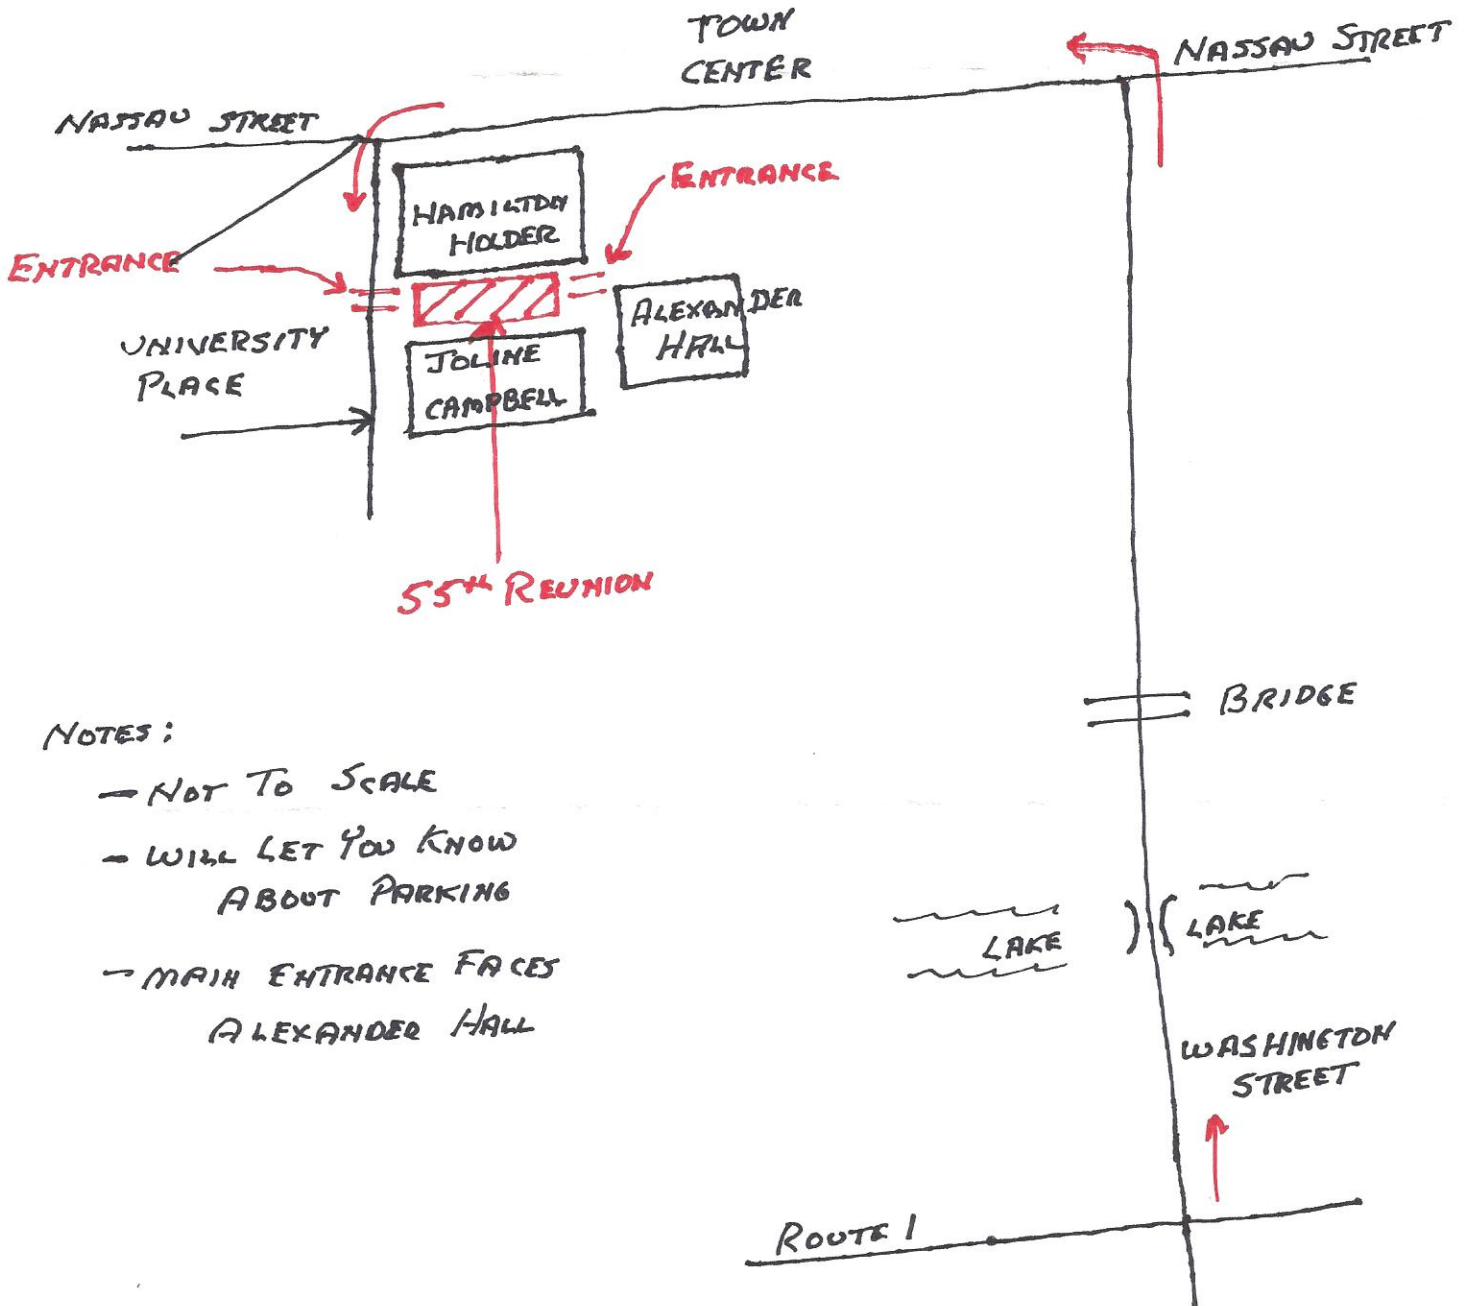 TOWN
CENTER
NASSAU STREET
NASSAU STREET
ENTRANCE
HAMILTON
HOLDER
ENTRANCE
ALEXANDER
HALL
UNIVERSITY
PLACE
JOLINE
CAMPBELL
55th REUNION
BRIDGE
NOTES:
- NOT TO SCALE
- WILL LET YOU KNOW
ABOUT PARKING
LAKE
LAKE
- MAIN ENTRANCE FACES
ALEXANDER HALL
WASHINGTON
STREET
ROUTE 1